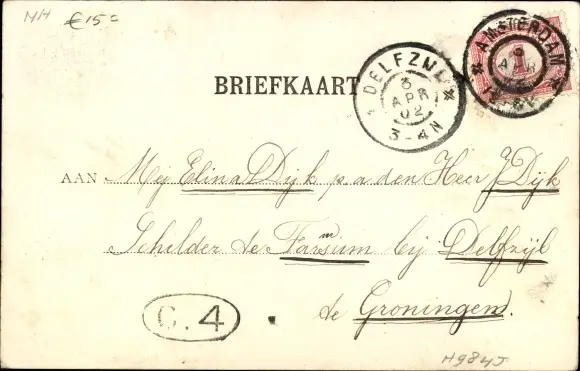 HH €15=
BRIEFKAART
DELFZIJL
3
APR
02
3-4N
AMSTERDAM
APR
1
AAN Mej Elina Dijk p. a den Heer J Dijk
Schilder te Farmsum bij Delfzijl
te Groningen.
G. 4
H984J